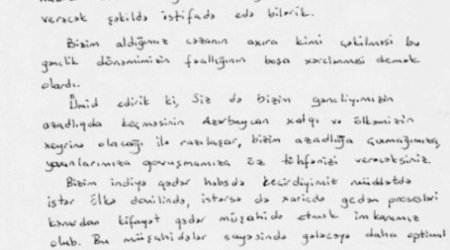 verəcək şəkildə istifadə edə bilərik.
Bizim aldığımız cəzanın axıra kimi çəkilməsi bu
gənclik dönəmimizin fəallığının boşa xərclənməsi demək
olardı.
Ümid edirik ki, Siz də bizin gəncliyimizin
azadlıqda keçməsinin Azərbaycan xalqı və ölkəmizin
xeyrinə olacağı ilə razılaşar, bizim azadlığa çıxmağımıza,
yaxınlarımıza qovuşmamıza öz töhfənizi verəcəksiniz.
Bizim indiyə qədər həbsdə keçirdiyimiz müddətdə
istər ölkə daxilində, istərsə də xaricdə gedən prosesləri
kənardan kifayət qədər müşahidə etmək imkanımız
olub. Bu müşahidələr sayəsində gələcəyə daha optimal